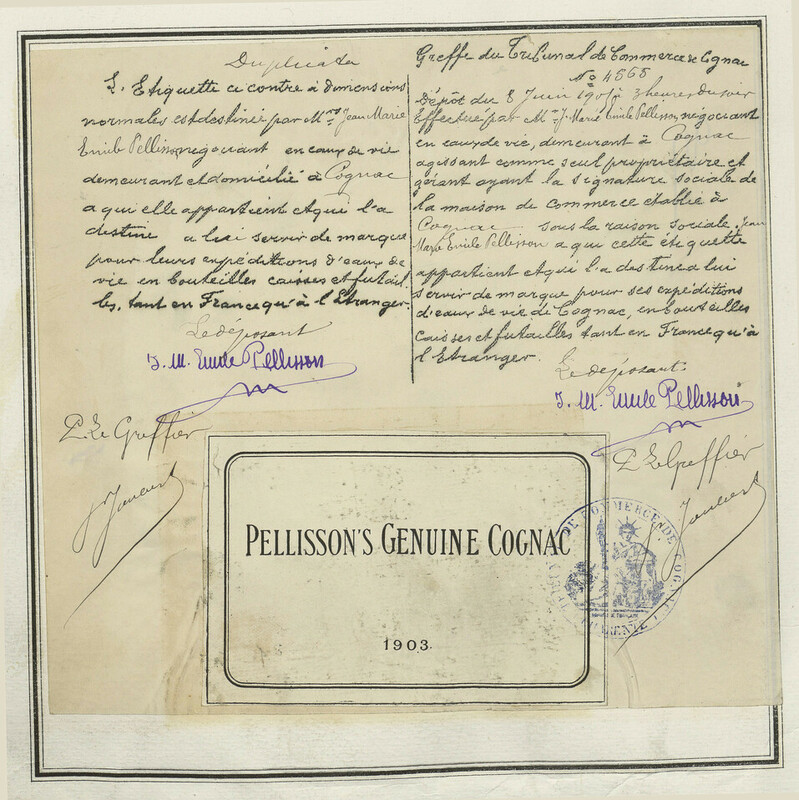 Duplicata
L'Etiquette ci contre à dimensions
normales est destinée par Mr Jean Marie
Emile Pellisson négociant en eaux de vie
demeurant et domicilié à Cognac
a qui elle appartient et qui l'a
destiné a lui servir de marque
pour leurs expéditions d'eaux de
vie en bouteilles caisses et futail
les, tant en France qu'à l'Etranger.
Le déposant
J. M. Emile Pellisson
P. Le Greffier
Greffe du Tribunal de Commerce de Cognac
No 4565
Dépôt du 8 Juin 190 à 3 heures du soir
Effectué par Mr J. Marie Emile Pellisson, négociant
en eaux de vie, demeurant à Cognac
agissant comme seul propriétaire et
gérant ayant la signature sociale de
la maison de Commerce établie à
Cognac sous la raison sociale. Jean
Marie Emile Pellisson a qui cette étiquette
appartient et qui l'a destinea lui
servir de marque pour ses expéditions
d'eaux de vie de Cognac, en bouteilles
caisses et futailles tant en France qu'à
l'Etranger.
Le déposant.
J. M. Emile Pellisson
P. Le Greffier
PELLISSON'S GENUINE COGNAC
1903
DE COMMERCE DE COGNAC